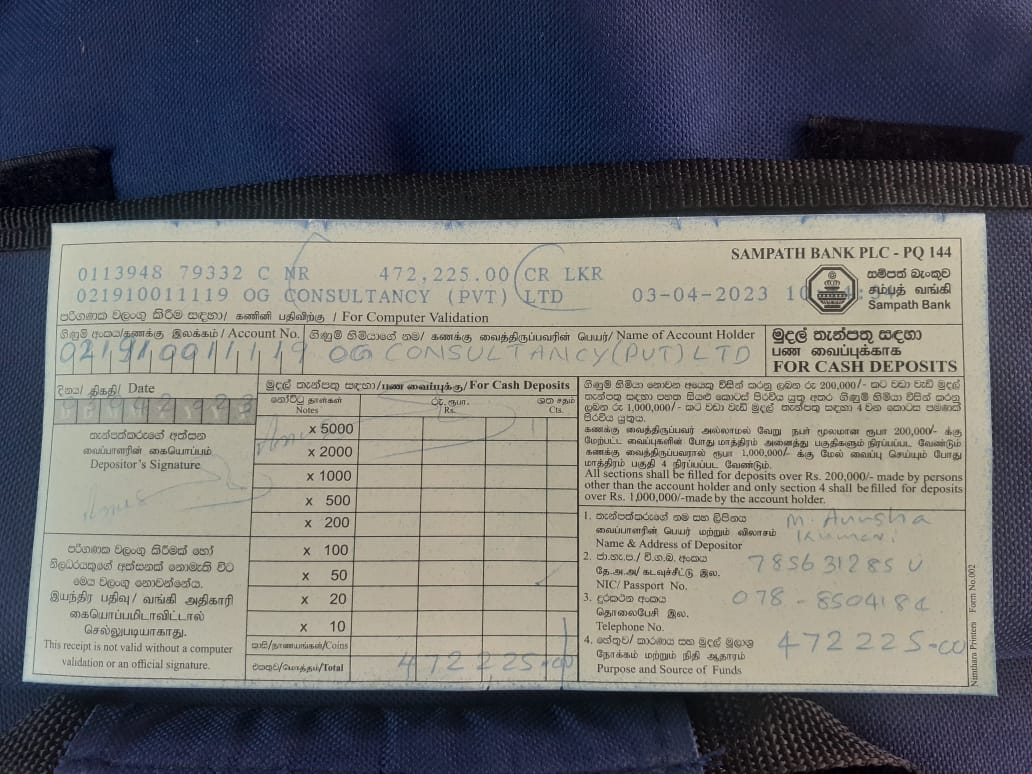 SAMPATH BANK PLC - PQ 144
0113948 79332 C NR 472,225.00 CR LKR
021910011119 OG CONSULTANCY (PVT) LTD 03-04-2023
සම්පත් බැංකුව
சம்பத் வங்கி
Sampath Bank
පරිගණක වලංගු කිරීම සඳහා/ கணினி பதிவிற்கு / For Computer Validation
ගිණුම් අංකය/கணக்கு இலக்கம் / Account No. ගිණුම් හිමියාගේ නම/ கணக்கு வைத்திருப்பவரின் பெயர்/ Name of Account Holder
021910011119 OG CONSULTANCY (PVT) LTD
මුදල් තැන්පතු සඳහා
பண வைப்புக்காக
FOR CASH DEPOSITS
දිනය/ திகதி/ Date
03042023
තැන්පත්කරුගේ අත්සන
வைப்பாளரின் கையொப்பம்
Depositor's Signature
පරිගණක වලංගු කිරීමක් හෝ
නිලධරයකුගේ අත්සනක් නොමැති විට
මෙය වලංගු නොවන්නේය.
இயந்திர பதிவு/ வங்கி அதிகாரி
கையொப்பமிடாவிட்டால்
செல்லுபடியாகாது.
This receipt is not valid without a computer
validation or an official signature.
මුදල් තැන්පතු සඳහා/பண வைப்புக்கு/ For Cash Deposits
නෝට්ටු தாள்கள் රු. ரூபா. ශත சதம்
Notes Rs. Cts.
x 5000
x 2000
x 1000
x 500
x 200
x 100
x 50
x 20
x 10
කාසි/நாணயங்கள்/Coins
එකතුව/மொத்தம்/Total 472225-00
ගිණුම් හිමියා නොවන අයෙකු විසින් කරනු ලබන රු 200,000/- කට වඩා වැඩි මුදල්
තැන්පතු සඳහා පහත සියළු කොටස් පිරවිය යුතු අතර ගිණුම් හිමියා විසින් කරනු
ලබන රු 1,000,000/- කට වඩා මුදල් තැන්පතු සඳහා 4 වන කොටස පමණක්
පිරවිය යුතුය.
கணக்கு வைத்திருப்பவர் அல்லாமல் வேறு நபர் மூலமான ரூபா 200,000/- க்கு
மேற்பட்ட வைப்புகளின் போது மாத்திரம் அனைத்து பகுதிகளும் நிரப்பப்பட வேண்டும்
கணக்கு வைத்திருப்பவரால் ரூபா 1,000,000/- க்கு மேல் வைப்பு செய்யும் போது
மாத்திரம் பகுதி 4 நிரப்பப்பட வேண்டும்.
All sections shall be filled for deposits over Rs. 200,000/- made by persons
other than the account holder and only section 4 shall be filled for deposits
over Rs. 1,000,000/-made by the account holder.
1. තැන්පත්කරුගේ නම සහ ලිපිනය M. Anusha
வைப்பாளரின் பெயர் மற்றும் விலாசம் Kumari
Name & Address of Depositor
2. ජා.හැ.ප./ වි.ග.බ. අංකය 785631285 V
தே.அ.அ/ கடவுச்சீட்டு இல.
NIC/ Passport No.
3. දුරකථන අංකය
தொலைபேசி இல.
Telephone No.
4. හේතුව/ කාරණය සහ මුදල් මූලාශ්‍ර 472225-00
நோக்கம் மற்றும் நிதி ஆதாரம்
Purpose and Source of Funds
Nimthara Printers Form No.002